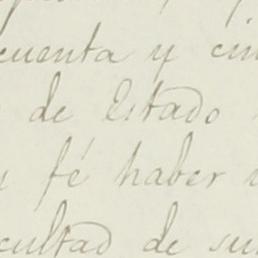 cuenta y cin
de Estado
fé haber
cultad de su